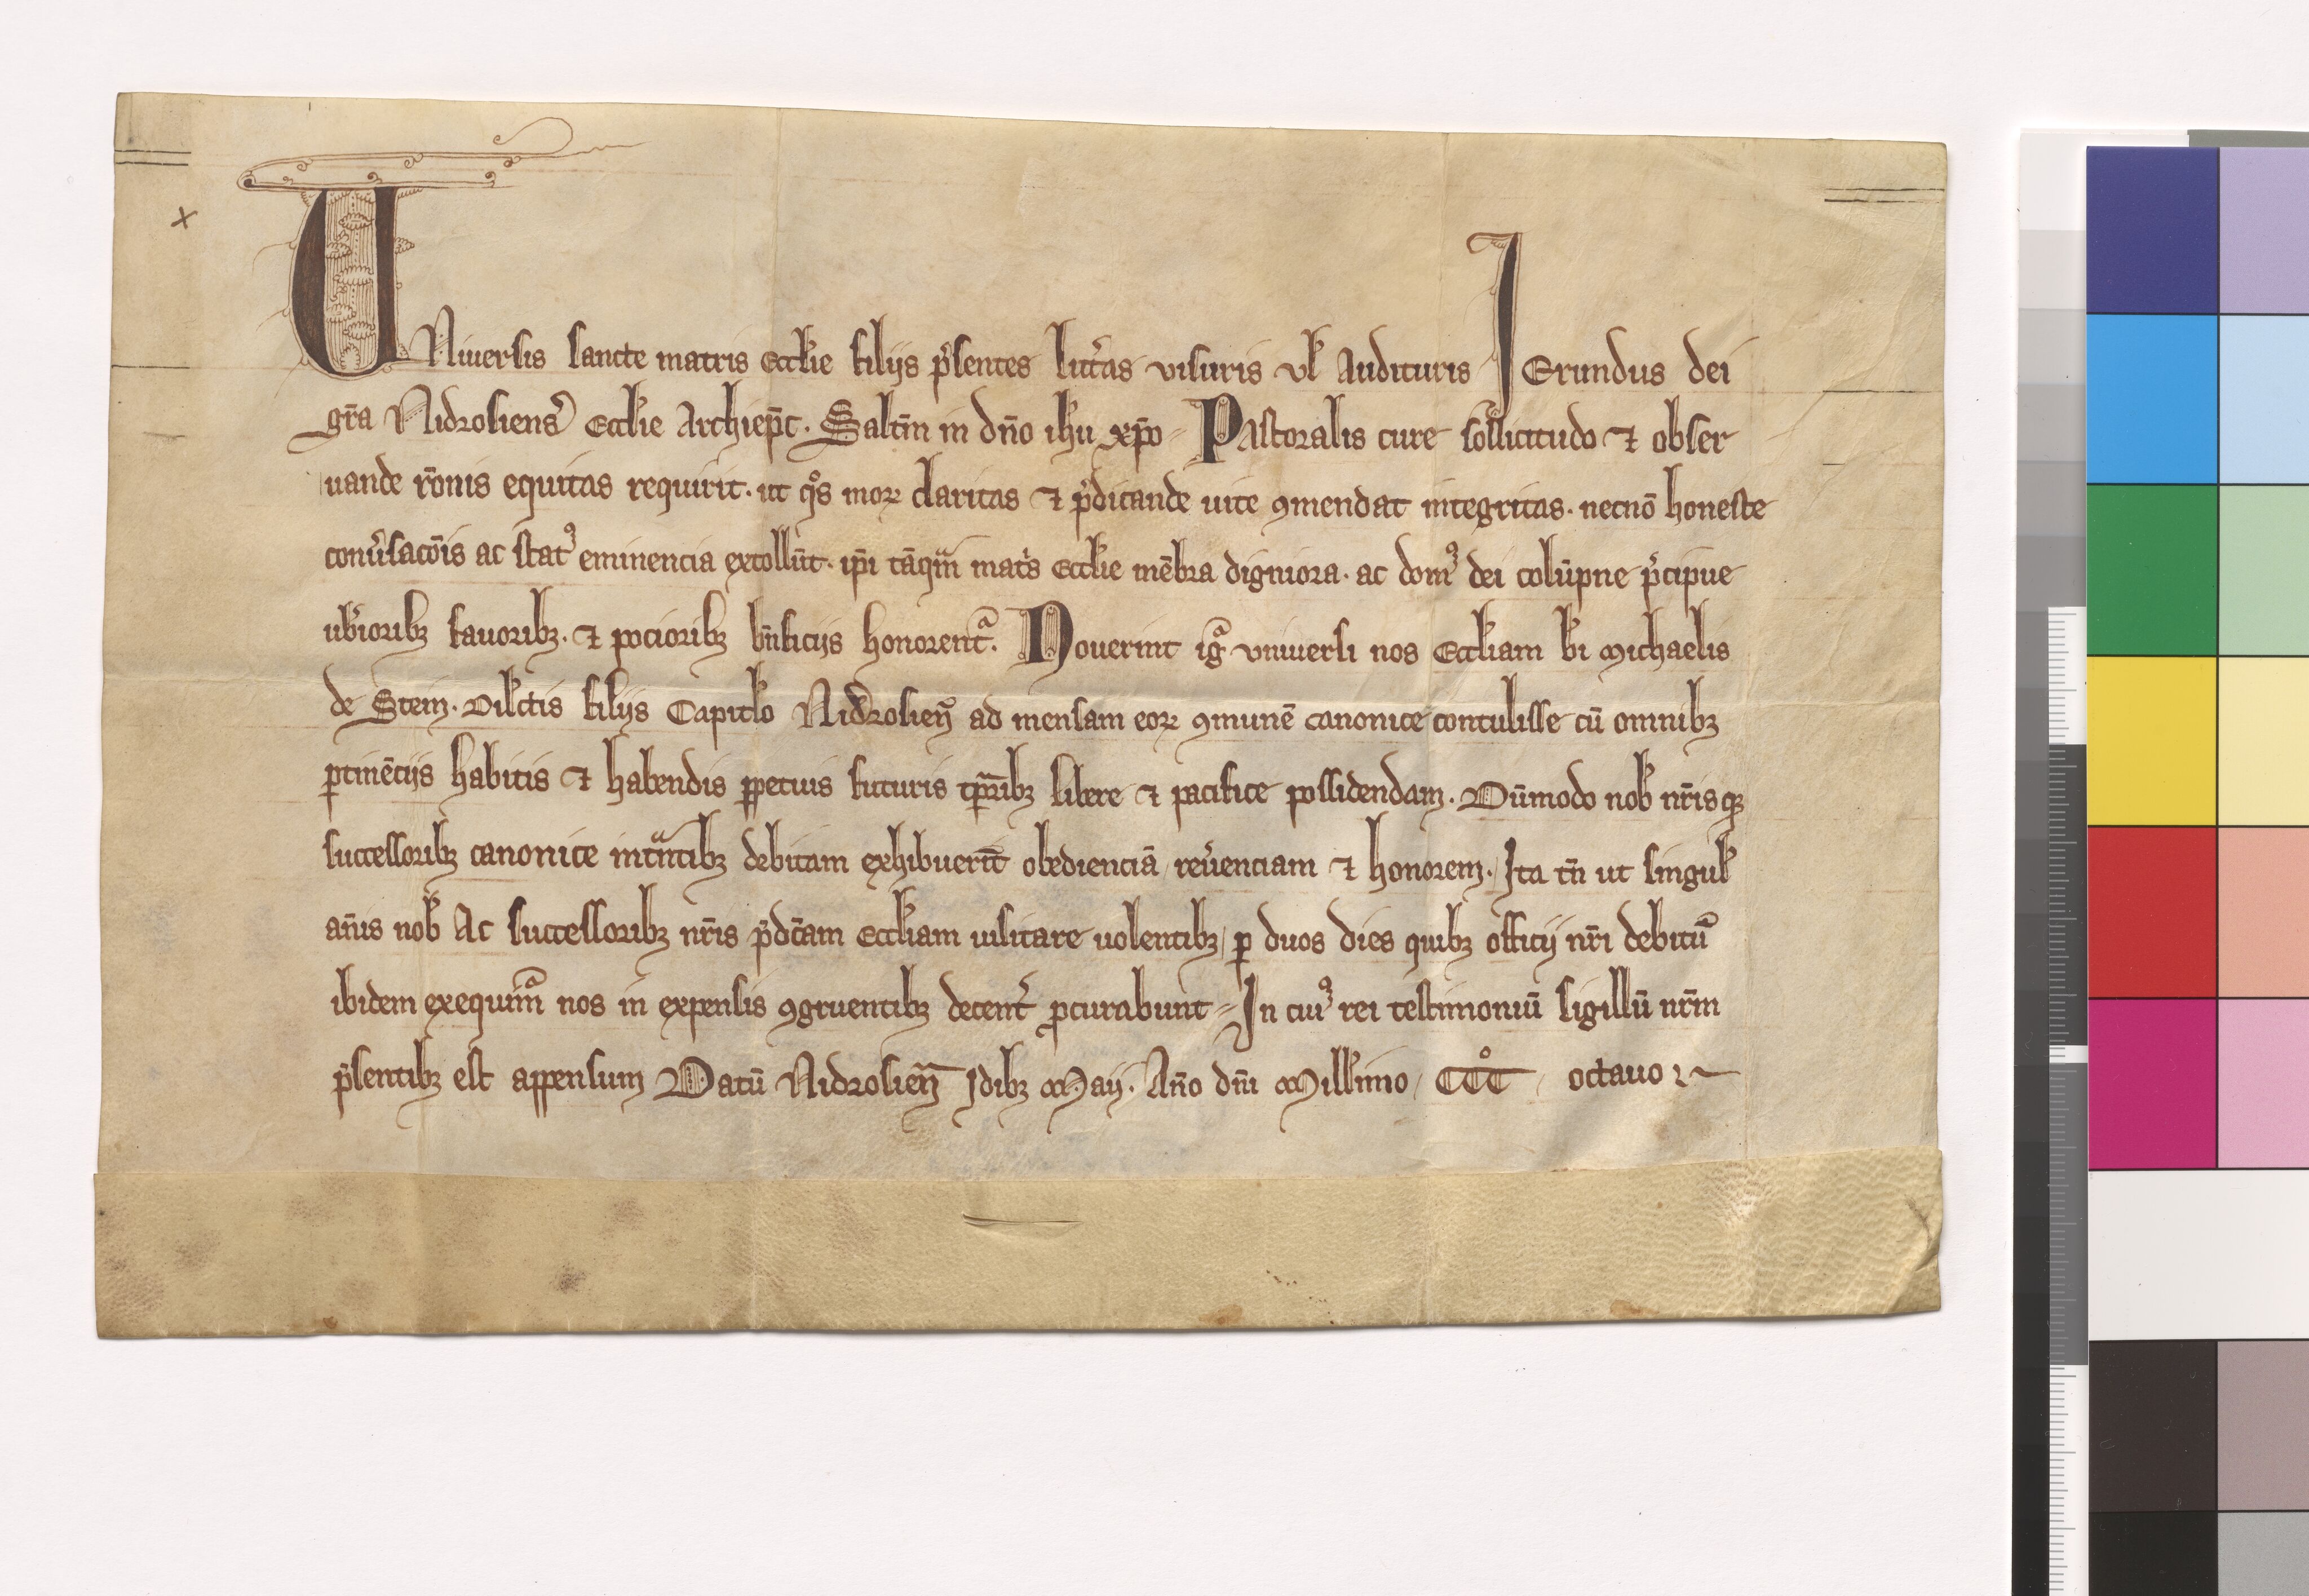 UNiuersis sancte matris Eccłie filijs p͛sentes litt͛as visuris vł Audituris JErundus dei
gr̄a Nidrosiens͛ Eccłie Archiep̄c. Saltm̄ in dn̄o ihu xp̄o Pastoralis cure sollicitudo ⁊ obser
uande rōnis equitas requirit. ut qͦs moꝝ claritas ⁊ p͛dicande uite ꝯmendat integritas. necnō honeste
conu͛sacōis ac statꝰ eminencia extollūt. ip̄i tāqᷓm mat͛s Eccłie mēbra digniora. ac domꝰ dei colūpne p͛cipue
ub͛ioribꝫ fauoribꝫ. ⁊ pocioribꝫ bn̄ficijs honorentᷓ. Nouerint igᷓ vniuersi nos Eccłiam bi Michaelis
de Stein. Dilc̄tis filijs Capitło Nidrosien͛ ad mensam eoꝝ ꝯmunē canonice contulisse cū omnibꝫ
ꝑtinēcijs habitis ⁊ habendis ꝑpetuis futuris tp̄ribꝫ libere ⁊ pacifice possidendam. Dūmodo nob nr̄isqꝫ
successoribꝫ canonice intᷓntibꝫ debitam exhibuerīt obedienciā reu͛enciam ⁊ honorem. Ita tn̄ ut singuł
an̄is nob Ac successoribꝫ nr̄is p͛dc̄am Eccłiam uisitare uolentibꝫ ꝑ duos dies quibꝫ officij nr̄i debitū
ibidem exequim̄ᷓ nos in expensis ꝯgruentibꝫ decent͛ ꝓcurabunt Jn cuiꝰ rei testimoniū sigillū nr̄m
p͛sentibꝫ est appensum Datū Nidrosien̄ Jdibꝫ Maij. An̄o dn̄i Mill͛imo CCCͦ octauo